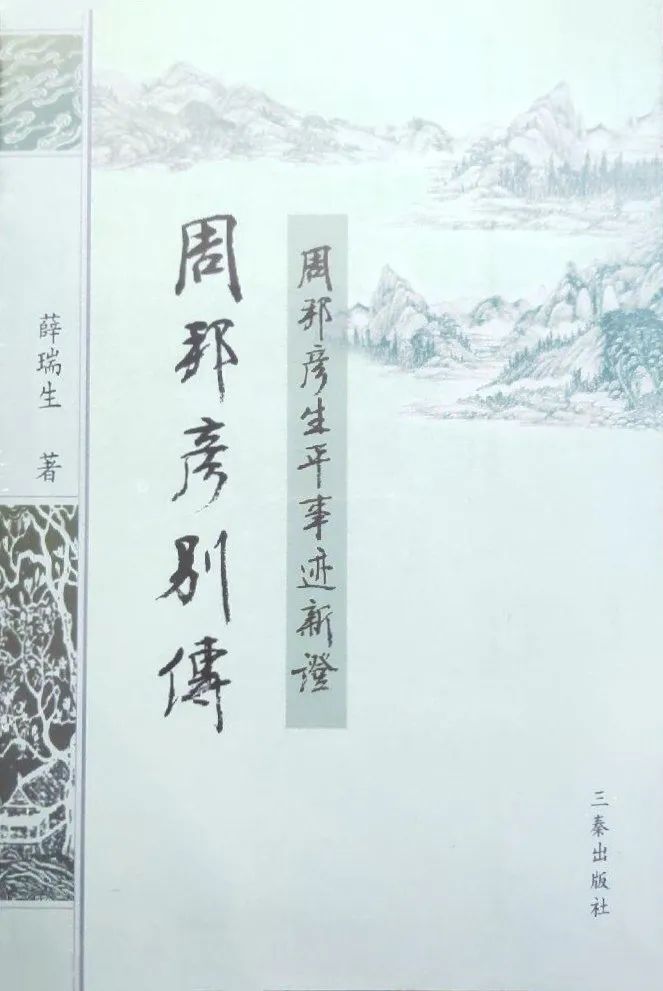 周邦彦生平事迹新證
周邦彦别傳
薛瑞生 著
三秦出版社